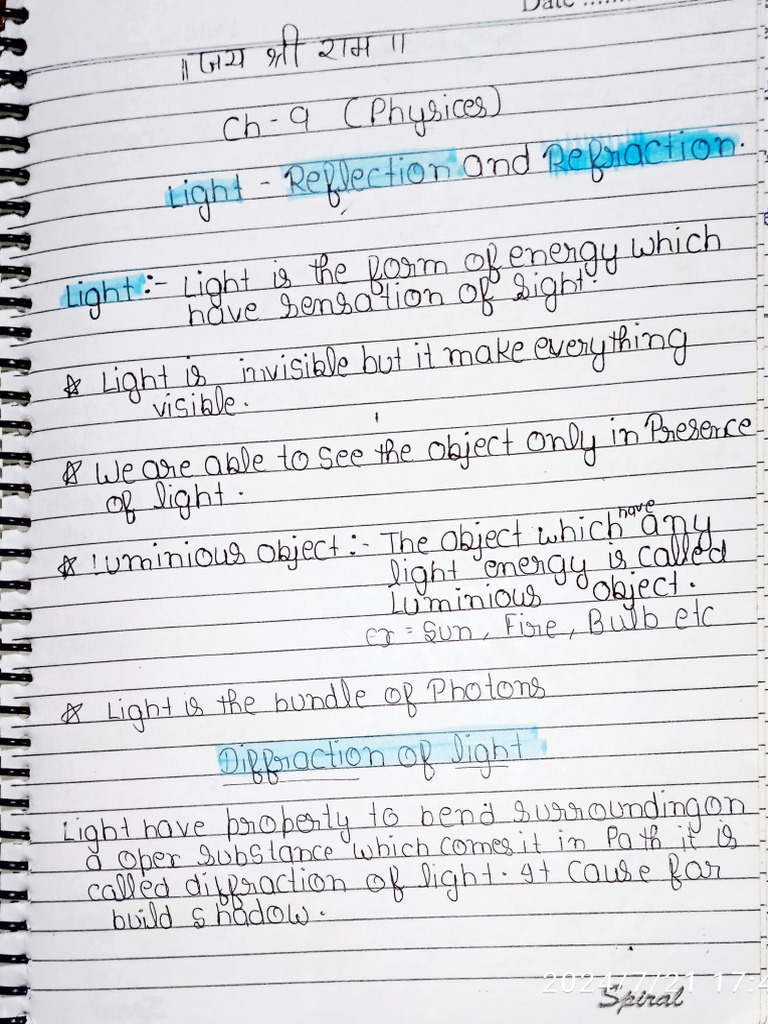 Date ......
॥ जय श्री राम ॥
Ch-9 (Physices)
Light - Reflection and Refraction.
Light :- Light is the form of energy which
have sensation of sight.
☆ Light is invisible but it make everything
visible.
☆ We are able to see the object only in Presence
of light.
☆ Luminious object :- The object which have any
light energy is called
Luminious object.
ex = Sun, Fire, Bulb etc
☆ Light is the bundle of Photons
Diffraction of light
Light have property to bend surrounding on
a oper substance which comes it in Path it is
called diffraction of light. It cause far
build shadow.
2024/7/21 17:4
Spiral